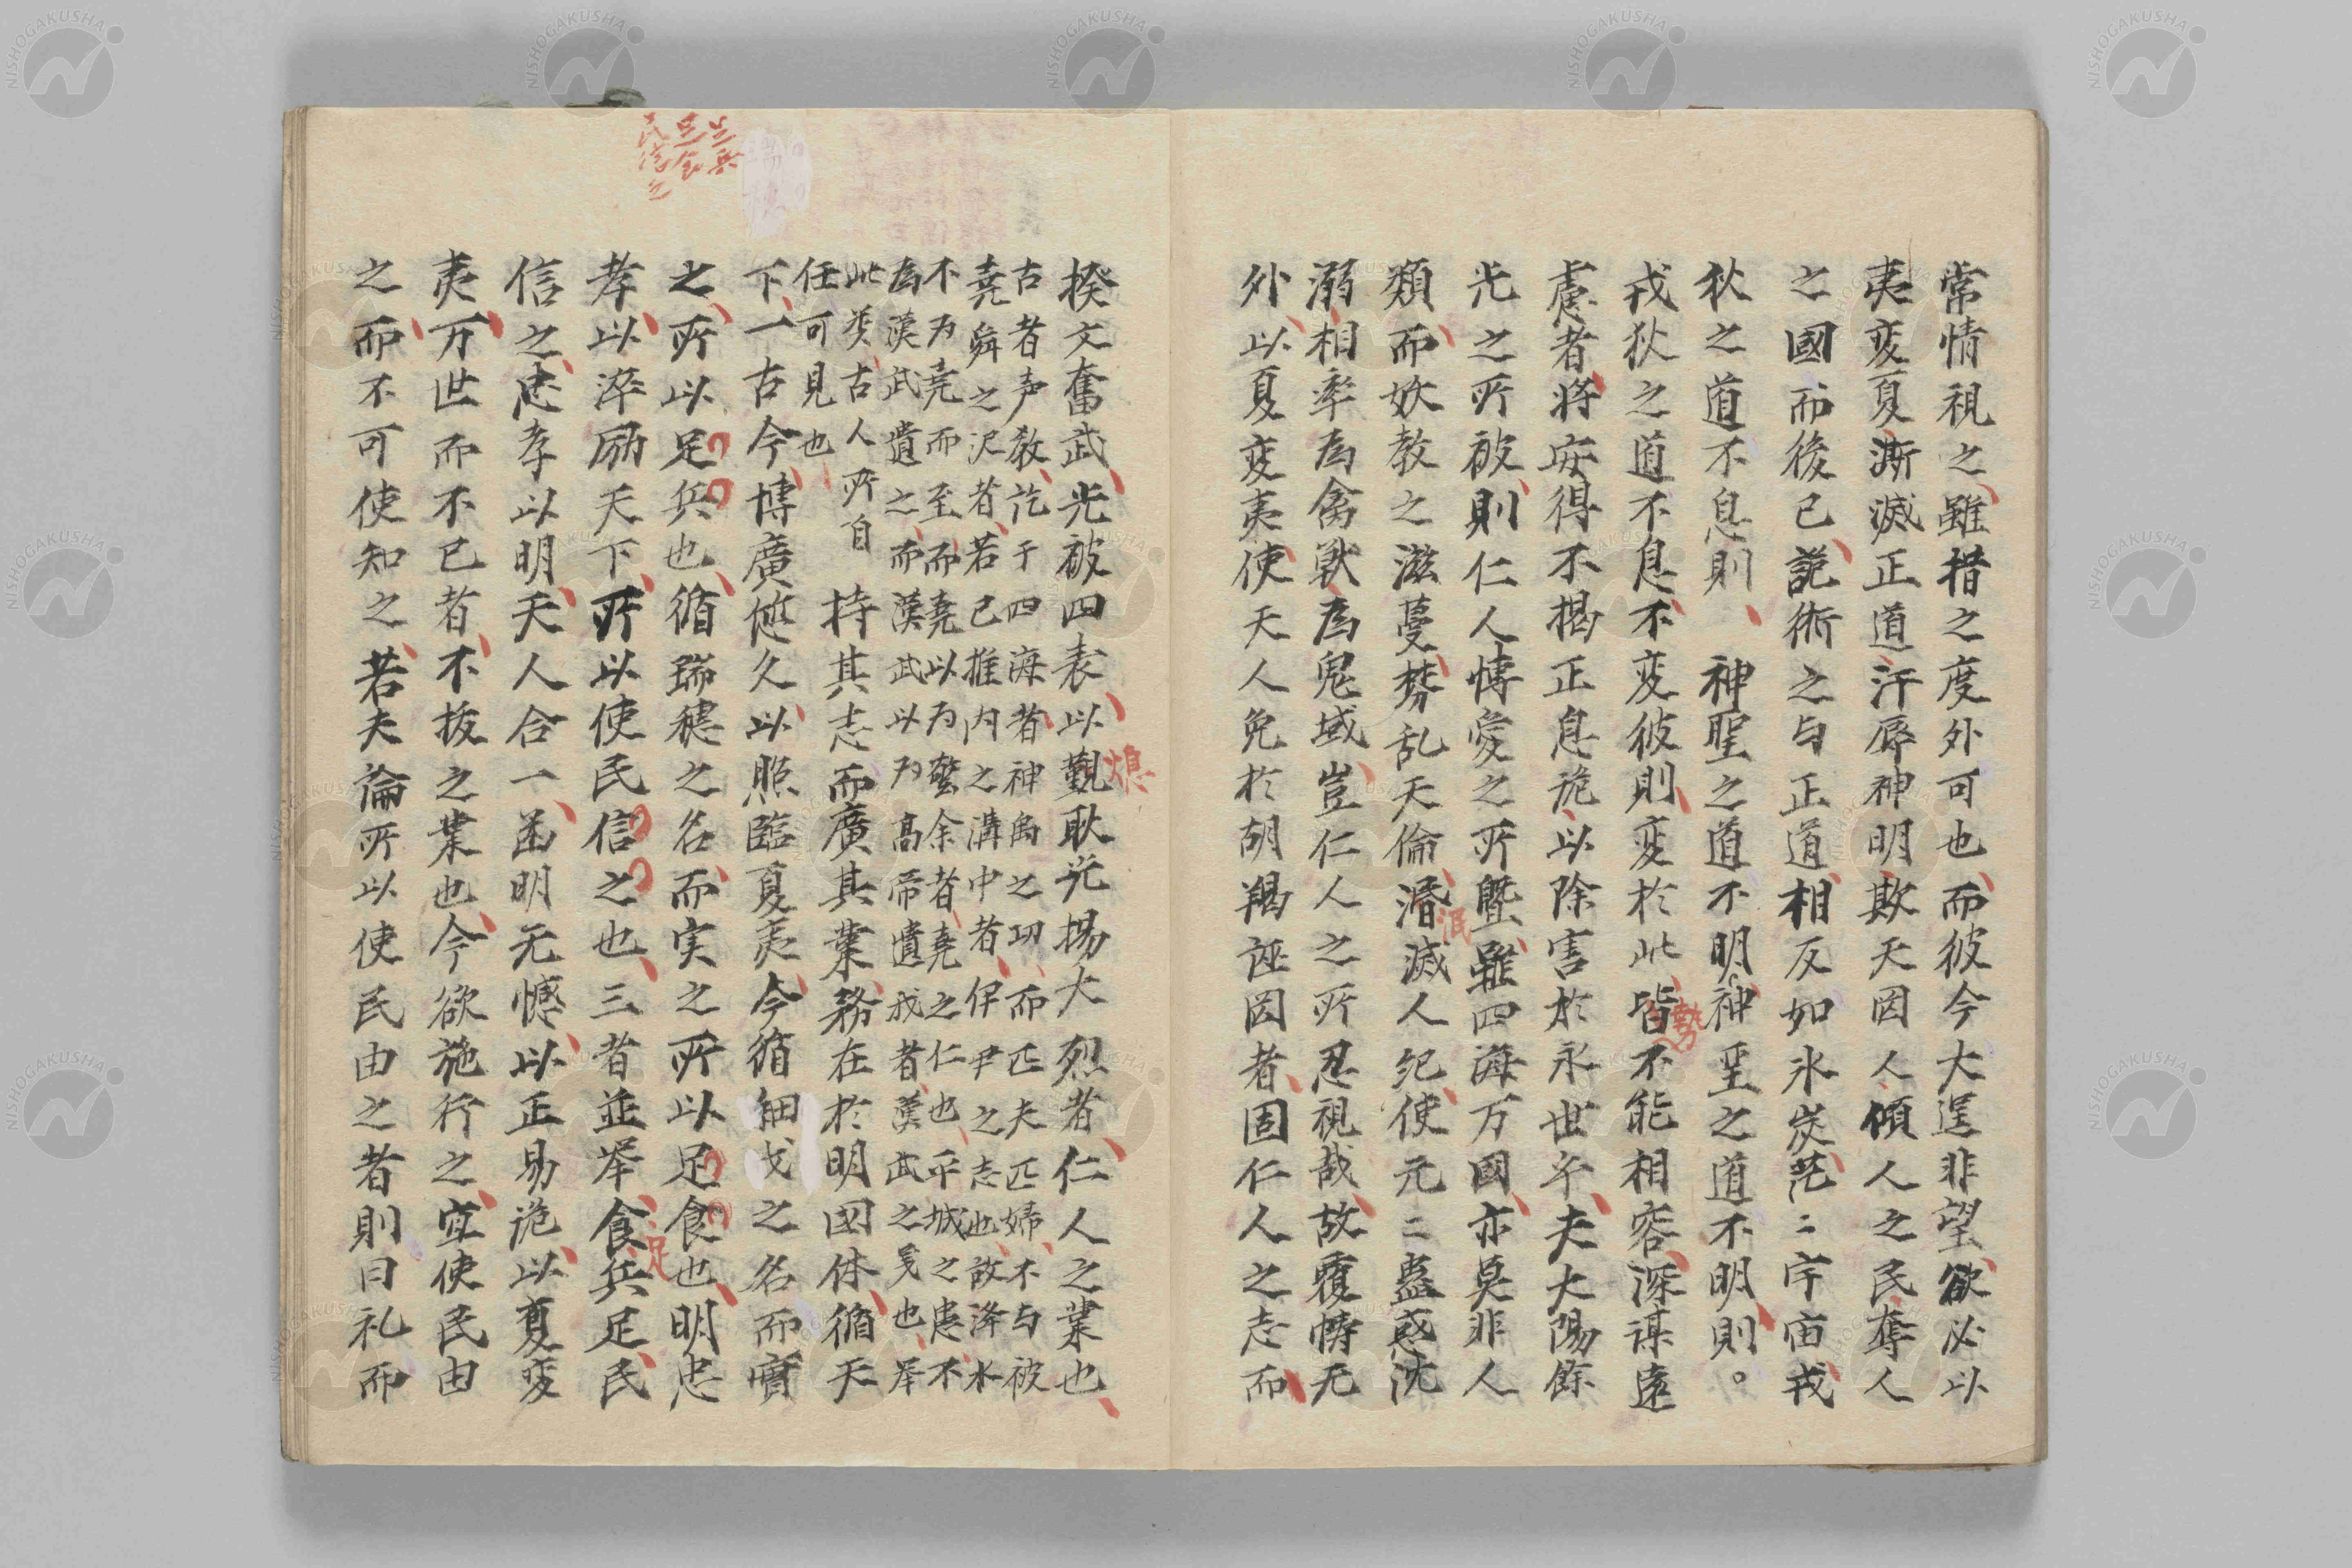 常情視之雖措之度外可也而彼今大逞非望欲必以
夷変夏澌滅正道汙辱神明欺天罔人傾人之民奪人
之國而後已詭術之与正道相反如氷炭茫〻宇宙戎
狄之道不息則　神聖之道不明神聖之道不明則。
戎狄之道不息不変彼則変於此皆不能相容深謀遠
勢
慮者将安得不揭正息詭以除害於永世乎夫大陽餘
光之所被則仁人愽愛之所曁雖四海万國亦莫非人
類而妖教之滋蔓棼乱天倫湣滅人紀使元〻蠱惑沈
泯
溺相率為禽獣為鬼域豈仁人之所忍視哉故覆幬无
外以夏変夷使天人免於胡羯誣罔者固仁人之志而
揆文奮武光被四表以覲耿光揚大烈者仁人之業也
熄
古者声教訖于四海者神禹之功而匹夫匹婦不与被
堯舜之沢者若己推内之溝中者伊尹之志也故洚水
不为堯而至而堯以为警余者堯之仁也平城之患不
為漢武遺之而漢武以为高帝遺我者漢武之
此類古人所自
任可見也
持其志而廣其業務在於明国体循天
下一古今博廣悠久以照臨夏夷今循細戈之名而實
之所以足兵也循瑞穂之名而実之所以足食也明忠
孝以淬励天下所以使民信之也三者並挙食兵足民
足
信之忠孝以明天人合一幽明无憾以正易詭以夏変
夷万世而不已者不抜之業也今欲施行之宜使民由
之而不可使知之若夫論所以使民由之者則曰礼而